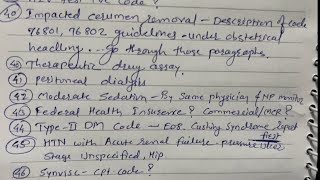 Code?
40 Impacted cerumen removal - Description of code
76801, 76802 guidelines under obstetrical
heading... go through those paragraphs.
40 Therapeutic drug assay.
41 peritoneal dialysis
42 Moderate Sedation - By Same physician & NP
43 Federal Health Insurance? Commercial/MCR?
44 Type-II DM Code - E08. Cushing Syndrome report
first
45 HTN with Acute renal failure - pressure ulcer
Stage Unspecified, Hip
46 Synvisc - CPT code?